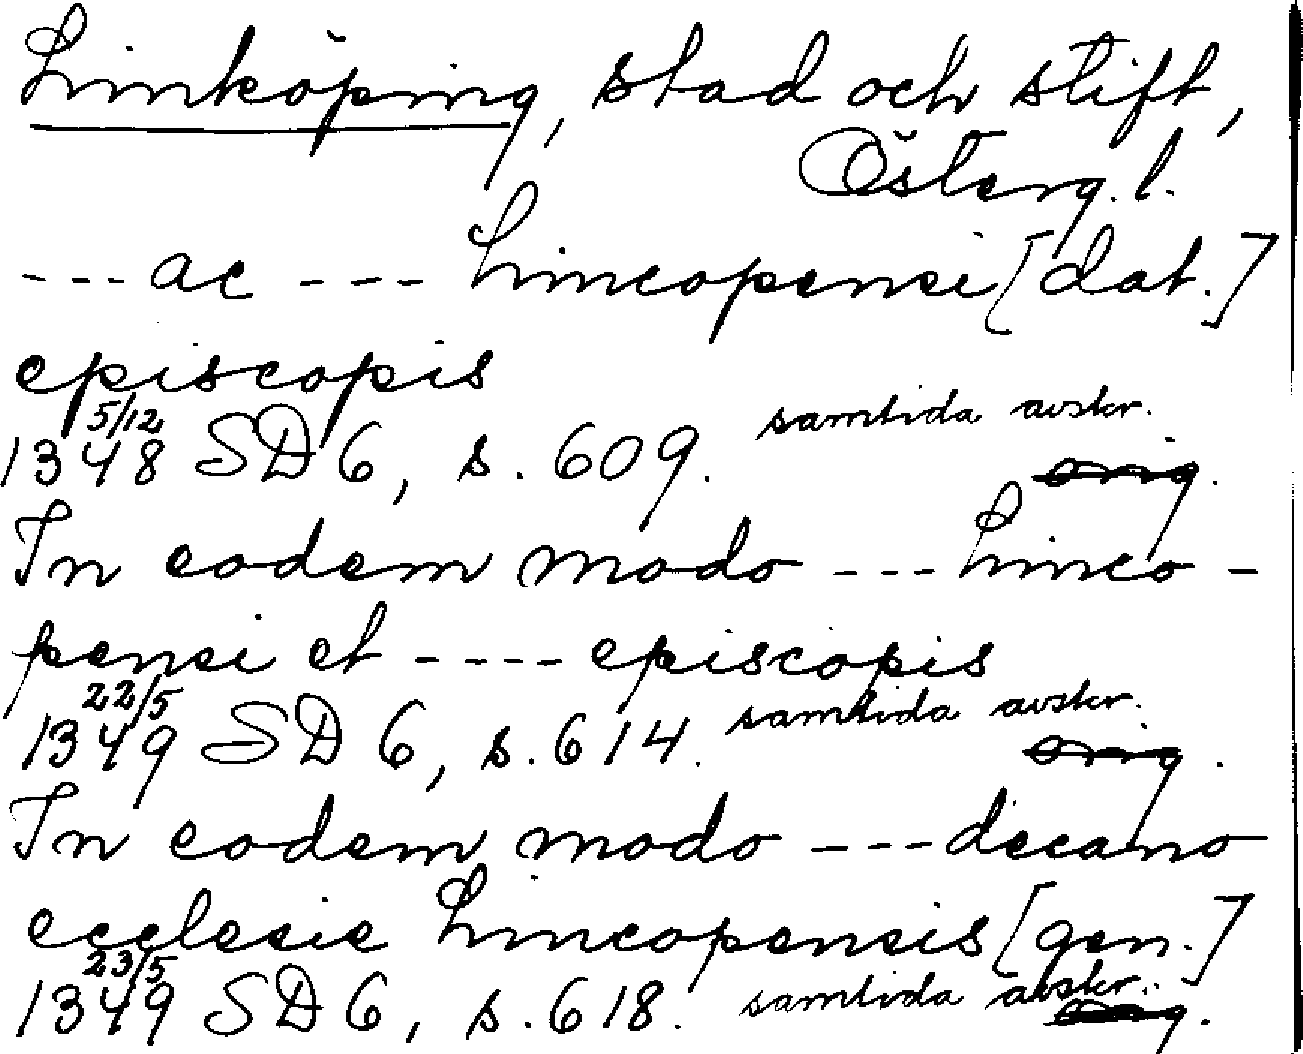 Linköping, stad och stift,
Österg. l.
--- ac --- Lincopensi [dat.]
episcopis
5/12
1348 SD 6, s. 609. samtida avskr.
orig.
In eodem modo --- Linco-
pensi et ---- episcopis
22/5
1349 SD 6, s. 614. samtida avskr.
orig.
In eodem modo --- decano
ecclesie Lincopensis [gen.]
23/5
1349 SD 6, s. 618. samtida avskr.
orig.